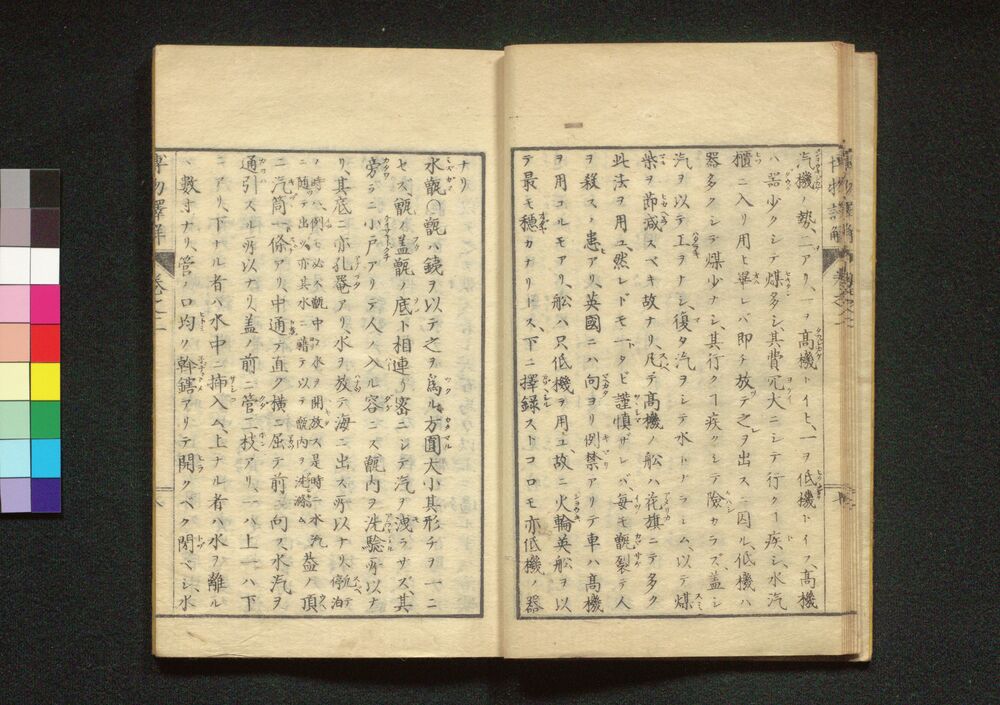 汽機ノ勢、二アリ、一ヲ高機トイヒ、一ヲ低機トイフ、高機
ハ器少クシテ煤多シ、其費冗大ニシテ行クヿ疾シ、水汽
櫃ニ入リ用ヒ畢レバ即チ放テ之ヲ出スニ因ル、低機ハ
器多クシテ煤少ナシ、其行クヿ疾クシテ險カラズ、蓋シ
汽ヲ以テ工ヲナシ、復タ汽ヲシテ水トナラシム、以テ煤
柴ヲ節減スベキ故ナリ、凡テ高機ノ船ハ花旗ニテ多ク
此法ヲ用ユ、然レドモ一タビ謹慎ザレバ、毎モ甑裂テ人
ヲ殺スノ患アリ、英國ニハ向ヨリ例禁アリテ車ハ高機
ヲ用ユルモアリ、船ハ只低機ヲ用ユ、故ニ火輪英船ヲ以
テ最モ穏カナリトス、下ニ擇録ストコロモ亦低機ノ器
ナリ
水甑○甑ハ鐵ヲ以テ之ヲ為ル、方圓大小其形チヲ一ニ
セズ、甑ノ蓋甑ノ底ト相連リ密ニシテ汽ヲ洩ラサズ、其
旁ラニ小戸アリテ人ノ入ル容ニス甑内ヲ洗験所以ナ
リ、其底ニ亦孔罨アリ、水ヲ放テ海ニ出ス所以ナリ、凡テ停泊
ノ時ハ、例シ必ズ甑中ノ水ヲ開放ス是時ニ水汽
ニ随テ出ツ、亦其水ニ藉テ以テ甑内ヲ洗滌ム
蓋ノ頂
ニ汽筒一條アリ、中通テ直グ横ニ屈テ前ニ向ス水汽ヲ
通引スル所以ナリ、蓋ノ前ニ管二枝アリ、一ハ上一ハ下
ニアリ、下ナル者ハ水中ニ挿入ム、上ナル者ハ水ヲ離ル
ヽ數寸ナリ、管ノ口均ク斡鎋アリテ開クベク閉ベシ、水
博物譯解 巻之二